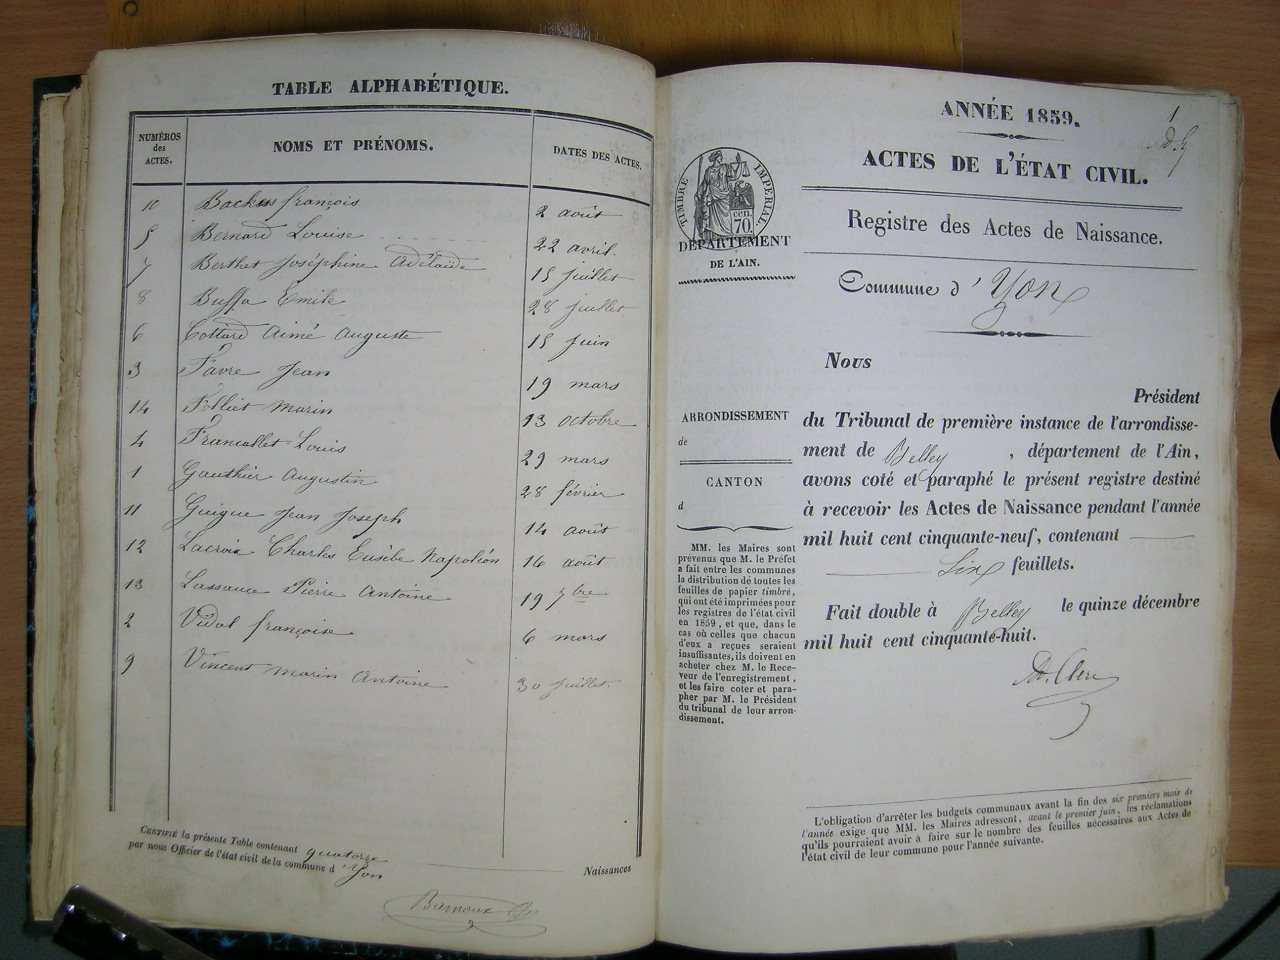 TABLE ALPHABÉTIQUE.
NUMÉROS des ACTES. NOMS ET PRÉNOMS. DATES DES ACTES.
10 Backus françois 2 août
5 Bernard Louise 22 avril.
7 Berthet Joséphine Adélaïde 15 juillet
8 Buffa Emile 28 juillet
6 Cottard Aimé Auguste 15 juin
3 Favre Jean 19 mars
14 Folliet Marin 13 octobre
4 Francallet Louis 29 mars
1 Gauthier Augustin 28 février
11 Guigue Jean Joseph 14 août
12 Lacroix Charles Eusèbe Napoléon 16 août
13 Lassauce Pierre Antoine 19 7bre
2 Vidal françoise 6 mars
9 Vincent Marin Antoine 30 Juillet.
CERTIFIÉ la présente Table contenant quatorze Naissances
par nous Officier de l'état civil de la commune d'Yon
ANNÉE 1859.
1
ACTES DE L'ÉTAT CIVIL.
Registre des Actes de Naissance.
TIMBRE IMPERIAL
70 cen.
DÉPARTEMENT
DE L'AIN.
Commune d'Yon
Nous
Président
du Tribunal de première instance de l'arrondisse-
ment de Belley, département de l'Ain,
avons coté et paraphé le présent registre destiné
à recevoir les Actes de Naissance pendant l'année
mil huit cent cinquante-neuf, contenant
Six feuillets.
Fait double à Belley le quinze décembre
mil huit cent cinquante-huit.
ARRONDISSEMENT
de
CANTON
d
MM. les Maires sont
prévenus que M. le Préfet
a fait entre les communes
la distribution de toutes les
feuilles de papier timbré,
qui ont été imprimées pour
les registres de l'état civil
en 1859, et que, dans le
cas où celles que chacun
d'eux a reçues seraient
insuffisantes, ils doivent en
acheter chez M. le Rece-
veur de l'enregistrement,
et les faire coter et para-
pher par M. le Président
du tribunal de leur arron-
dissement.
L'obligation d'arrêter les budgets communaux avant la fin des six premiers mois de
l'année exige que MM. les Maires adressent, avant le premier juin, les réclamations
qu'ils pourraient avoir à faire sur le nombre des feuilles nécessaires aux Actes de
l'état civil de leur commune pour l'année suivante.